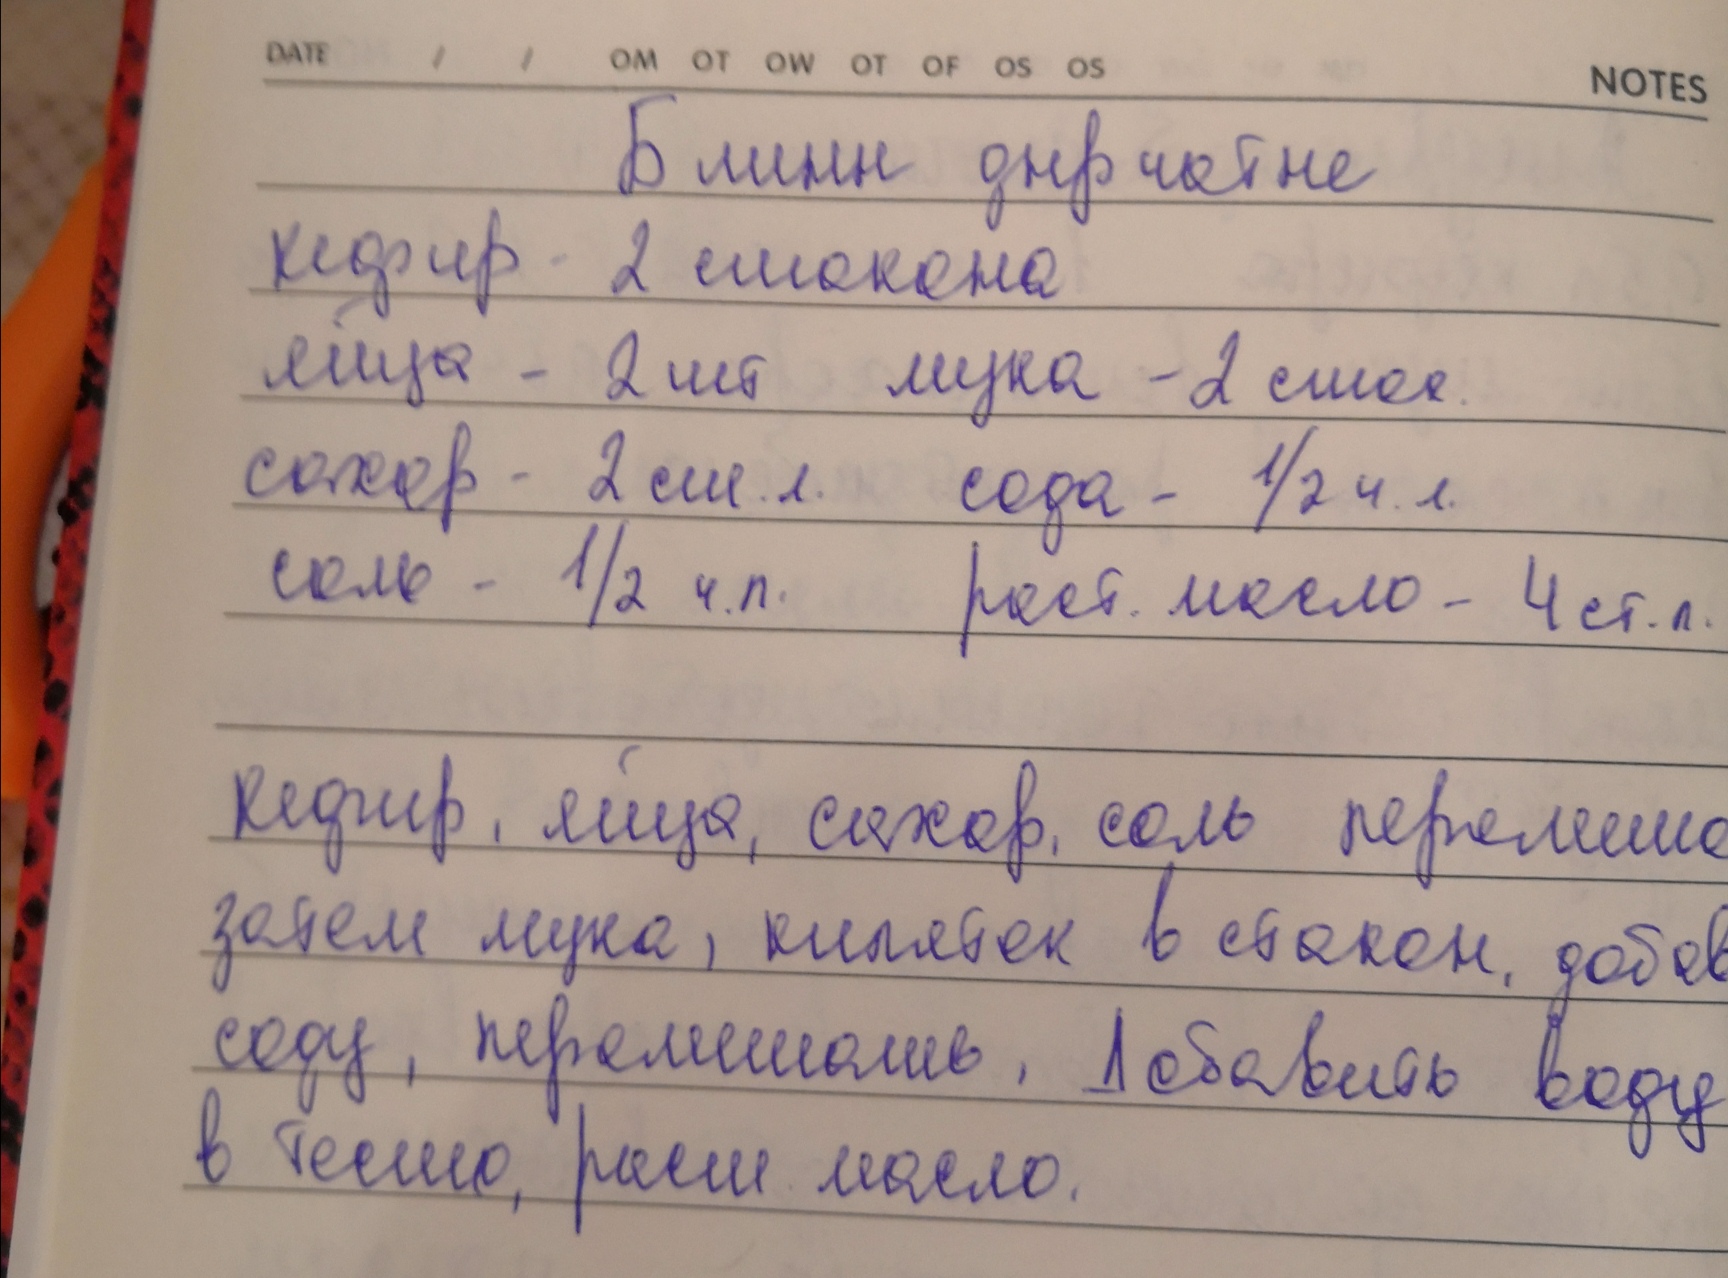 DATE / / OM OT OW OT OF OS OS NOTES
Блины дырчатые
кефир - 2 стакана
яйца - 2 шт мука - 2 стак.
сахар - 2 ст. л. сода - 1/2 ч. л.
соль - 1/2 ч.л. раст. масло - 4 ст.л.
кефир, яйца, сахар, соль перемеша
затем мука, кипяток в стакан, добав
соду, перемешать, Добавить воду
в тесто, раст масло.